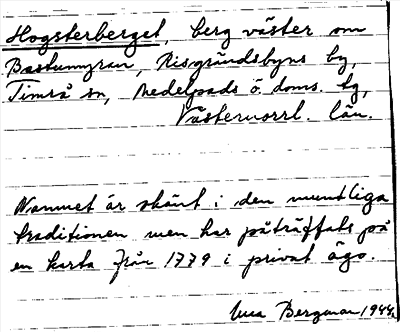 Hogsterberget, berg väster om
Bastumyran, Risgrändsbyns by,
Timrå sn, Medelpads ö. doms. tg,
Västernorrl. län.
Namnet är okänt i den muntliga
traditionen men har påträffats på
en karta från 1779 i privat ägo.
Bergman 1944.